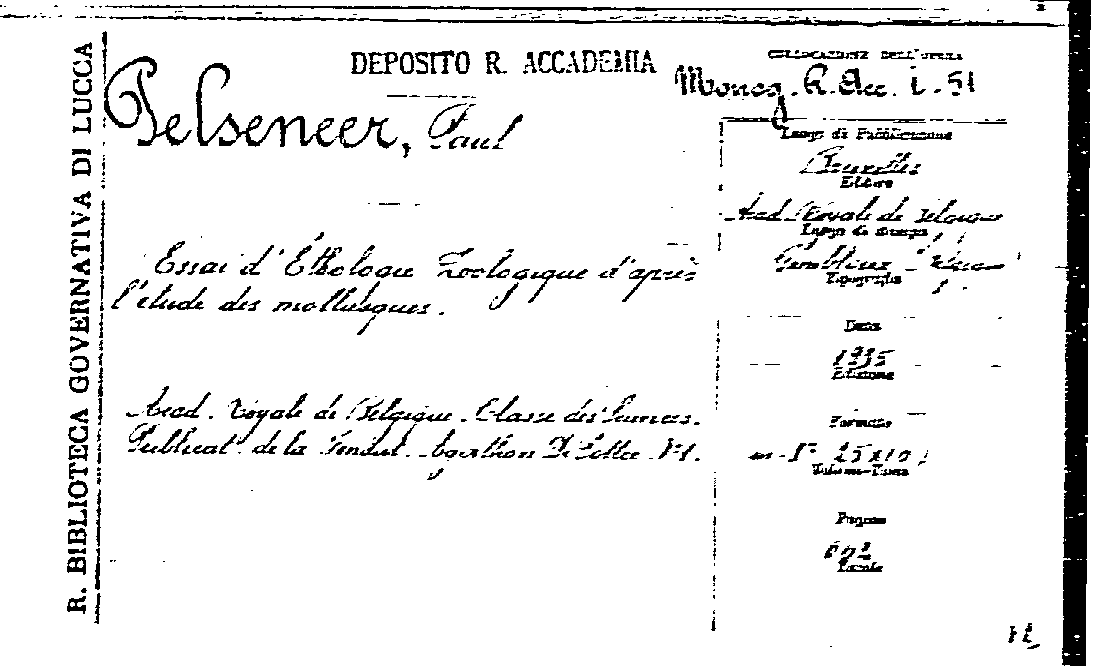 R. BIBLIOTECA GOVERNATIVA DI LUCCA
DEPOSITO R. ACCADEMIA
COLLOCAZIONE DELL'OPERA
Monog. R. Acc. i - 51
Pelseneer, Paul
Luogo di Pubblicazione
Bruxelles
Editore
Acad. Royale de Belgique
Luogo di stampa
Essai d'Éthologie Zoologique d'après
l'étude des mollusques.
Gembloux
Tipografia
Data
1935
Edizione
Acad. Royale de Belgique. Classe des Sciences.
Publicat. de la Fondat. Agathon De Potter
Formato
in-8°
Volume-Tomo
Pagine
662
Tavole